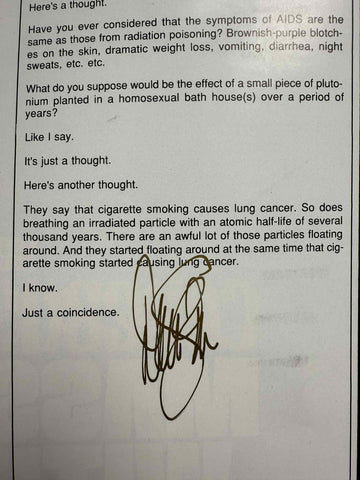 Here's a thought.
Have you ever considered that the symptoms of AIDS are the
same as those from radiation poisoning? Brownish-purple blotch-
es on the skin, dramatic weight loss, vomiting, diarrhea, night
sweats, etc. etc.
What do you suppose would be the effect of a small piece of pluto-
nium planted in a homosexual bath house(s) over a period of
years?
Like I say.
It's just a thought.
Here's another thought.
They say that cigarette smoking causes lung cancer. So does
breathing an irradiated particle with an atomic half-life of several
thousand years. There are an awful lot of those particles floating
around. And they started floating around at the same time that cig-
arette smoking started causing lung cancer.
I know.
Just a coincidence.